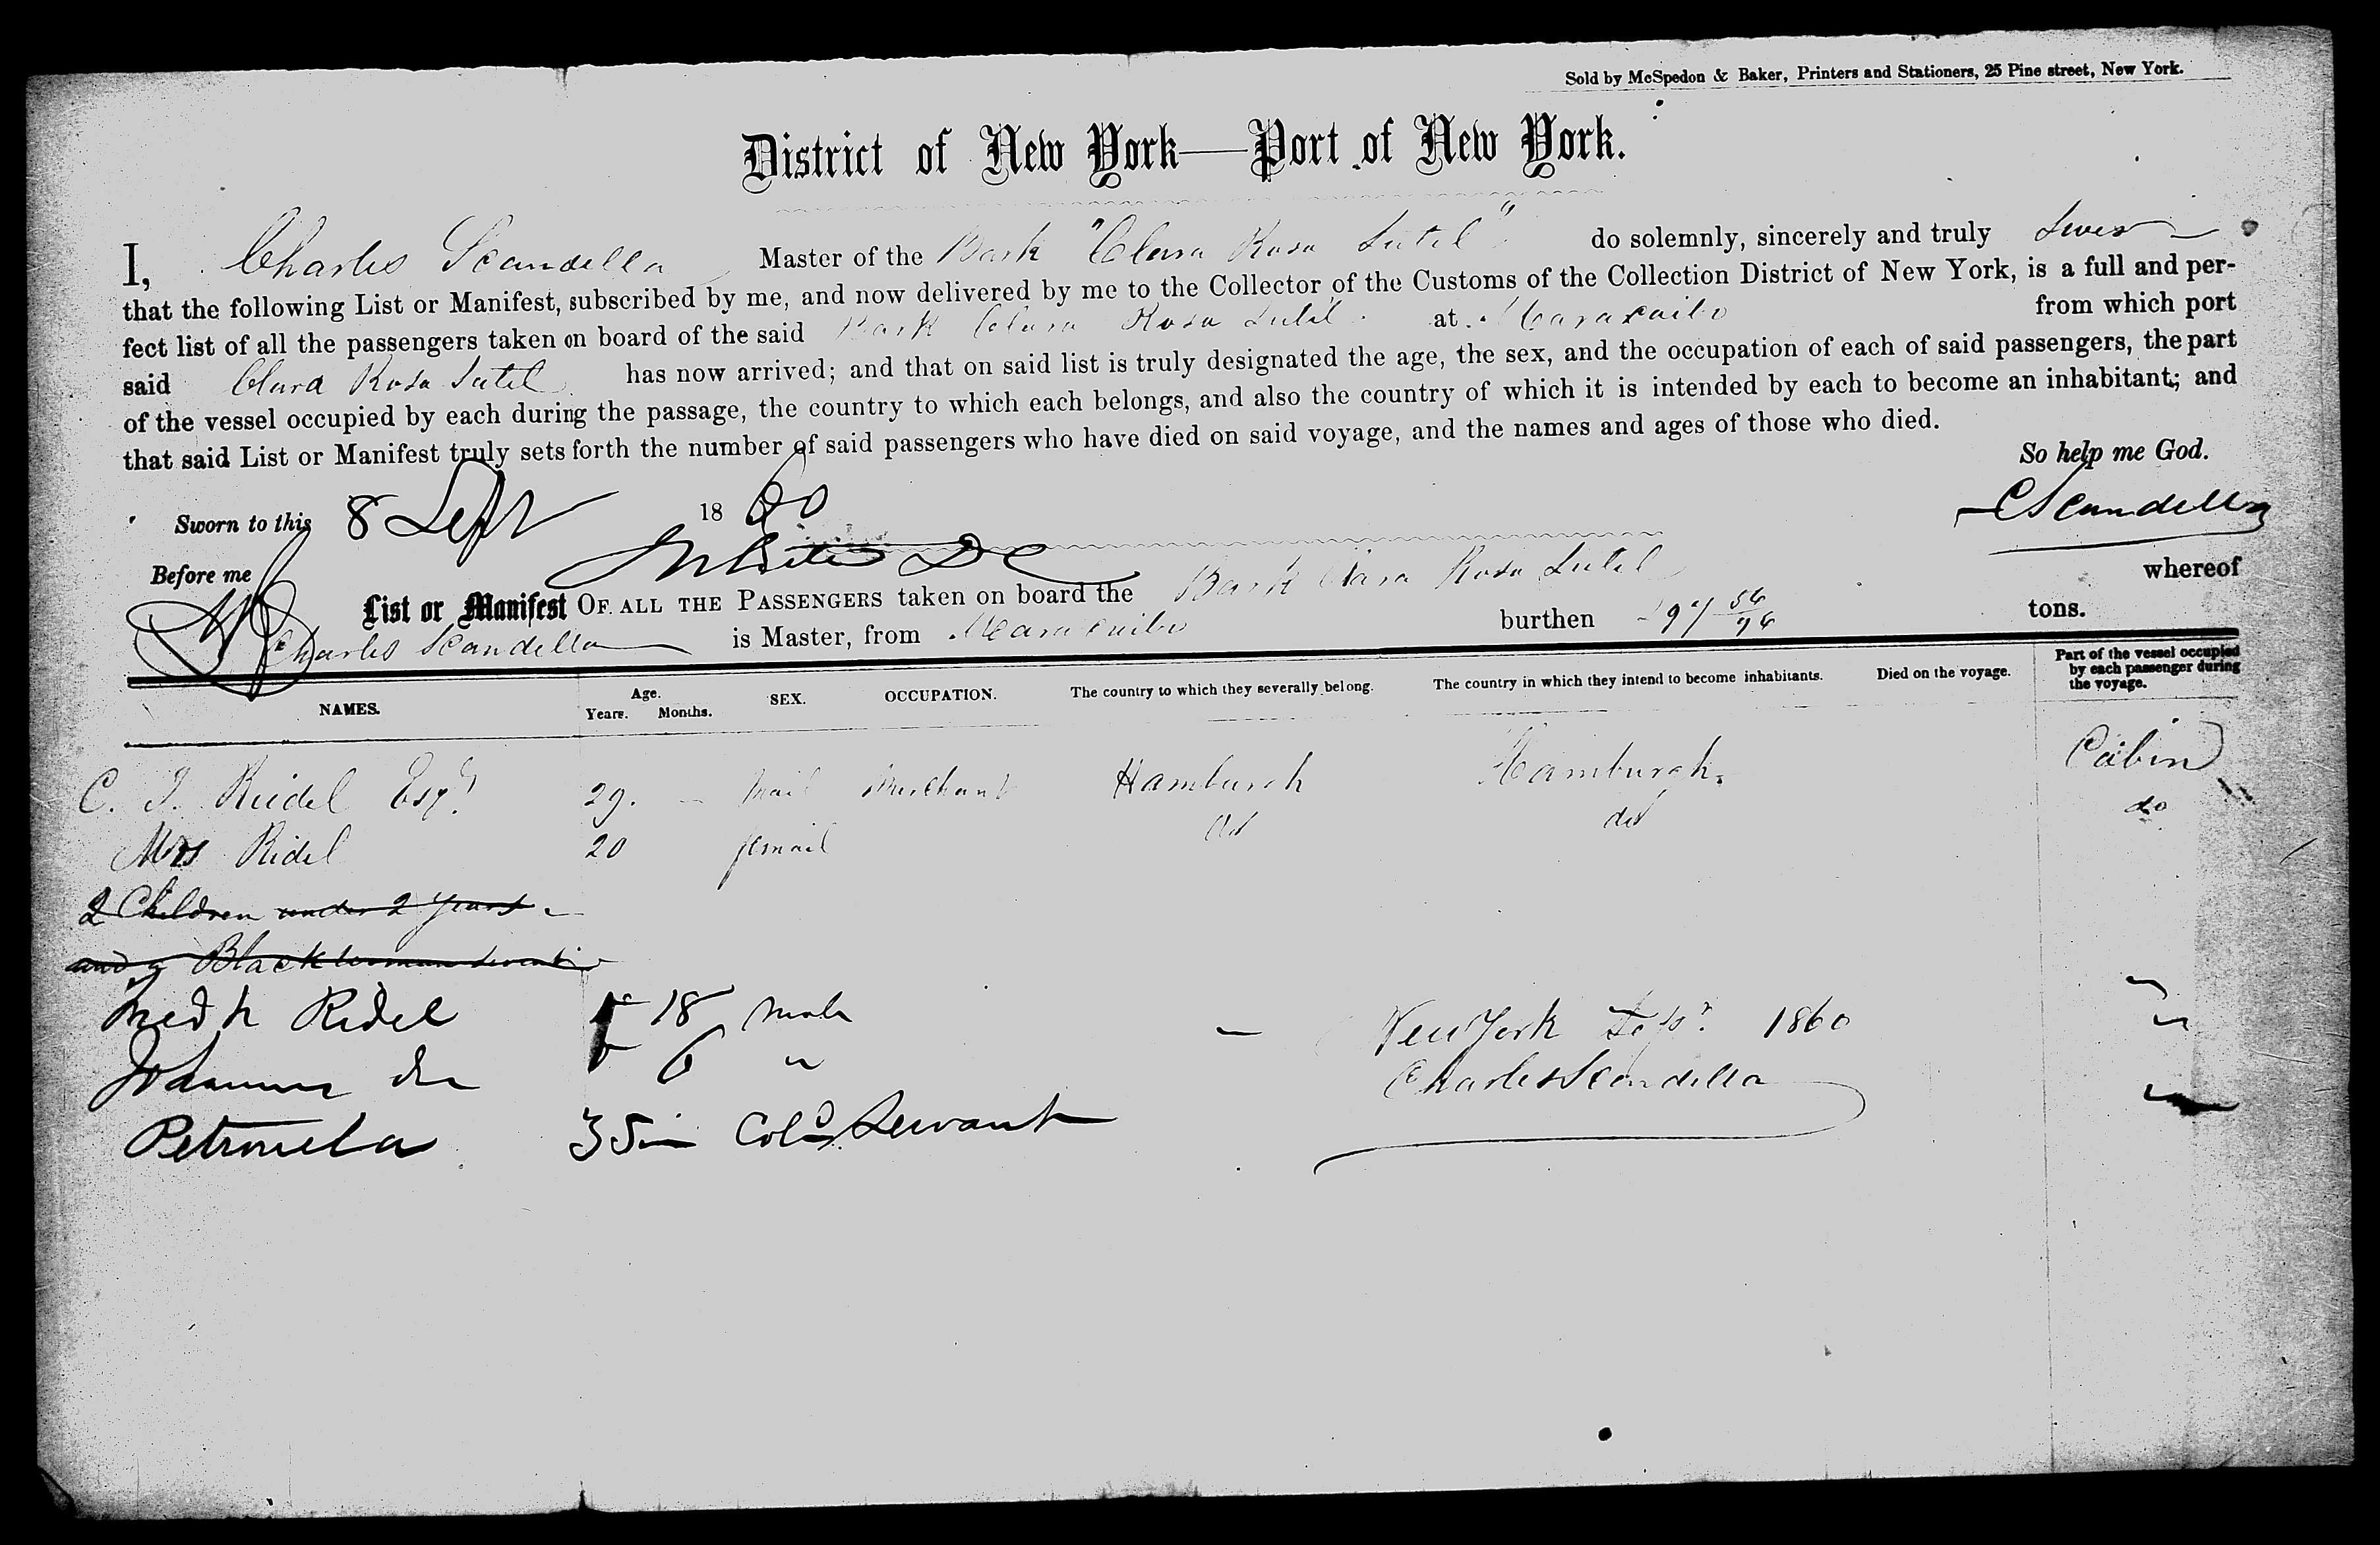 Sold by McSpedon & Baker, Printers and Stationers, 25 Pine street, New York.
District of New York—Port of New York.
I, Charles Scandella Master of the Bark "Clara Rosa Sutil" do solemnly, sincerely and truly Swear
that the following List or Manifest, subscribed by me, and now delivered by me to the Collector of the Customs of the Collection District of New York, is a full and per-
fect list of all the passengers taken on board of the said Bark Clara Rosa Sutil at Maracaibo from which port
said Clara Rosa Sutil has now arrived; and that on said list is truly designated the age, the sex, and the occupation of each of said passengers, the part
of the vessel occupied by each during the passage, the country to which each belongs, and also the country of which it is intended by each to become an inhabitant; and
that said List or Manifest truly sets forth the number of said passengers who have died on said voyage, and the names and ages of those who died.
So help me God.
Sworn to this 8 Sept 1860
CScandella
Before me
List or Manifest OF ALL THE PASSENGERS taken on board the Bark Clara Rosa Sutil whereof
Charles Scandella is Master, from Maracaibo burthen tons.
NAMES. Age. Years. Months. SEX. OCCUPATION. The country to which they severally belong. The country in which they intend to become inhabitants. Died on the voyage. Part of the vessel occupied by each passenger during the voyage.
C. Reidel Esqr. 29. – mail Merchant Hamburgh Hamburgh. Cabin
Mrs Ridel 20 femail do do do
2 Children under 2 years
and a Black woman
Ridel 18 male
6 "
New York Sepr. 1860
Charles Scandella
Petronela 35 Cold Servant